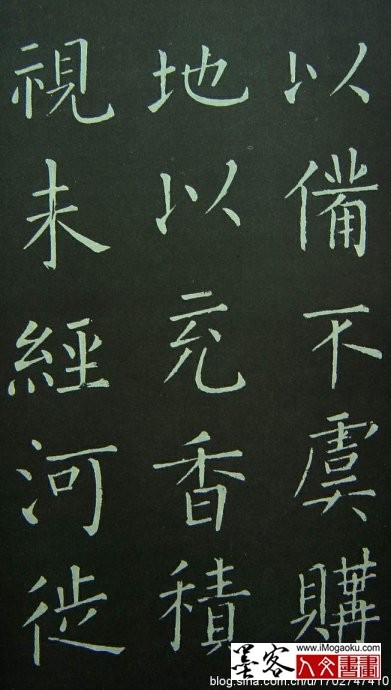 以備不虞購
地以充香積
視未經河徙
墨客
www.iMogaoku.com
人文書畫
blog.sina.com.cn/u/1702747410